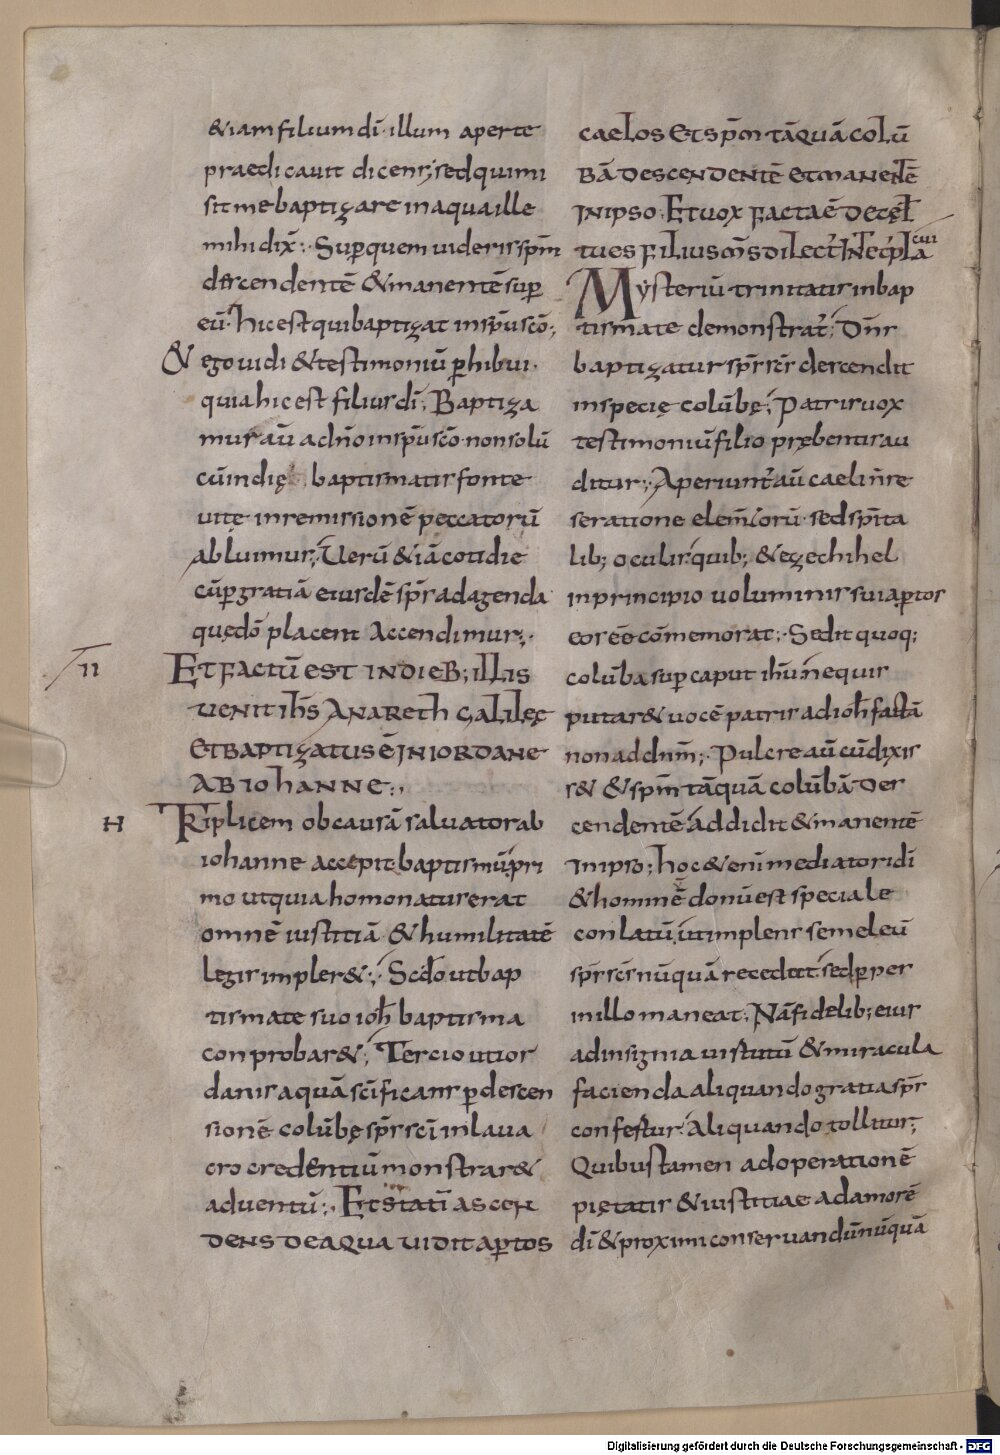 &iam filium dī· illum aperte
praedicauit dicens; sed qui mi
sit me baptizare in aqua ille
mihi dix̄; Sup quem uideris sp̄m
descendentē & manentē sup
eū· hic est qui baptizat in sp̄u sc̄o;
& ego uidi & testimoniū phibui·
quia hic est filius dī; Baptiza
mur aū a dn̄o in sp̄u sc̄o· non solū
cū in die baptismatis fonte
uitę in remissionē peccatorū
abluimur; Uerū & iā cotidie
cū p gratiā eiusdē sp̄s ad agenda
quę dō placent accendimur;
II
Et factū est in dieb; illis
uenit ih̄s a Nazareth galileę
et baptizatus ē in iordane
ab iohanne;
H
Triplicem ob causā saluator ab
iohanne accepit baptismū; pri
mo ut quia homo natus erat
omnē iustitiā & humilitatē
legis impler&; Scdo ut bap
tismate suo ioh̄ baptisma
conprobar&; Tercio ut ior
danis aquā sc̄ificans p descen
sionē colūbę sp̄s sc̄i in laua
cro credentiū monstrar&
aduentū; Et statī ascen
dens de aqua uidit aptos
caelos et sp̄m tāquā colū
bā descendentē et manentē
in ipso· Et uox facta ē de cęł
tu es filius m̄s dilect' in te cplacui
Mysteriū trinitatis in bap
tismate demonstrat'; Dn̄s
baptizatur sp̄s sc̄s descendit
in specię colūbę; Patris uox
testimoniū filio prębentis au
ditur; Aperiunt' aū caeli n̄ re
seratione elem̄torū· sed sp̄ita
lib; oculis quib; & ezechihel
in principio uoluminis sui aptos
eos ēe cōmemorat; Sedit quoq;
colūba sup caput ih̄u ne quis
putar& uocē patris ad ioh̄ factā
non ad dn̄m; Pulcre aū cū dixis
s& & sp̄m tāquā colūbā des
cendentē addidit & manentē
in ipso; hoc & enī mediatori dī
& hominē donū est speciale
conlatū ut implens semel eū
sp̄s sc̄s nūquā recedat· sed pper
in illo maneat; Nā fidelib; eius
ad insignia uirtutū & miracula
facienda aliquando gratia sp̄s
confertur· Aliquando tollitur;
Quibus tamen ad operationē
piętatis & iustitiae ad amorē
dī & proximi conseruandū nūquā
Digitalisierung gefördert durch die Deutsche Forschungsgemeinschaft - DFG